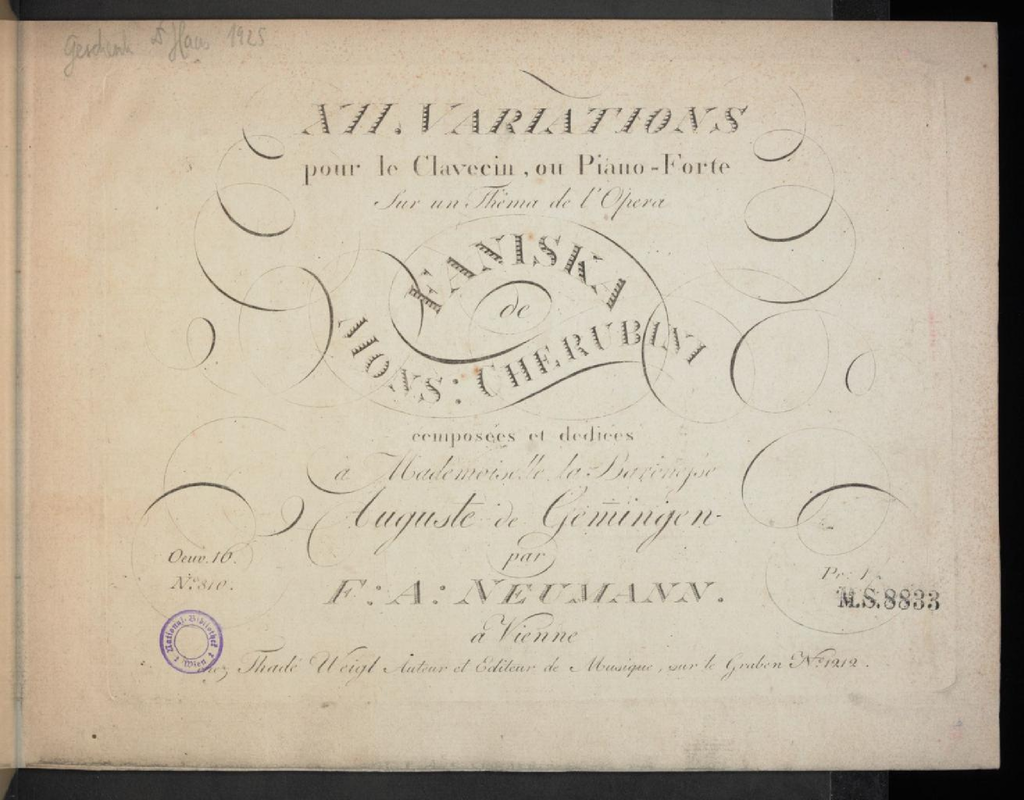 Geschenk Dr Haas 1925
XII. VARIATIONS
pour le Clavecin, ou Piano-Forte
Sur un Thêma de l'Opera
FANISKA
de
MONS: CHERUBINI
composées et dediées
à Mademoiselle la Baronesse
Auguste de Gem̄ingen
par
F: A: NEUMANN.
à Vienne
chez Thadé Weigl Auteur et Editeur de Musique, sur le Graben Nº 1212.
Oeuv. 16.
Nº 810.
Pr: f
M.S. 8833
National-Bibliothek
Wien